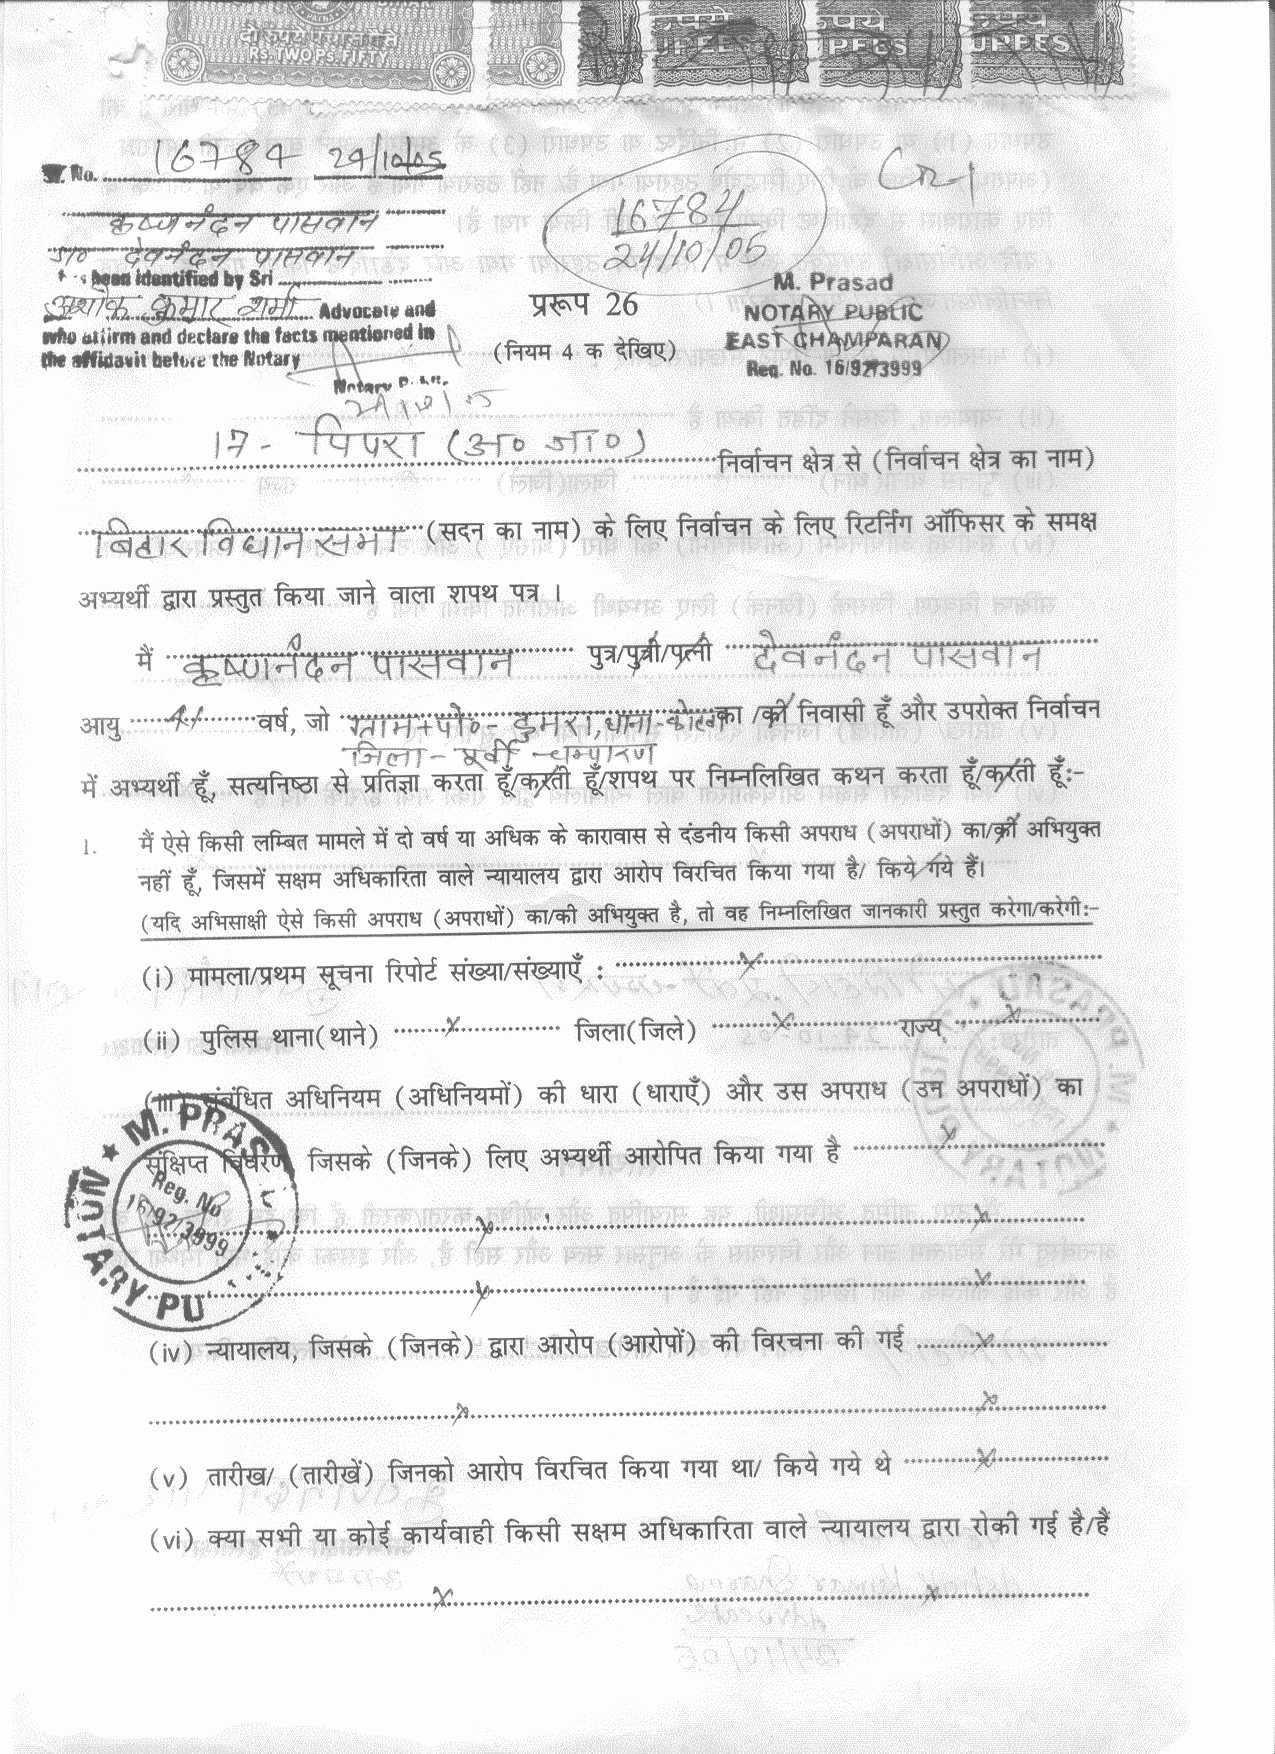 दो रुपये पचास पैसे
Rs. TWO Ps. FIFTY
रुपये रुपये रुपये
RUPEES RUPEES RUPEES
No. 16784 24/10/05
कृष्णनंदन पासवान
S/o देवनंदन पासवान
been identified by Sri
अशोक कुमार शर्मा Advocate and
who affirm and declare the facts mentioned in
the affidavit before the Notary
Notary Public
16784
24/10/05
M. Prasad
NOTARY PUBLIC
EAST CHAMPARAN
Reg. No. 16/92/3999
प्ररूप 26
(नियम 4 क देखिए)
17- पिपरा (अ० जा०) निर्वाचन क्षेत्र से (निर्वाचन क्षेत्र का नाम)
बिहार विधान सभा (सदन का नाम) के लिए निर्वाचन के लिए रिटर्निंग ऑफिसर के समक्ष
अभ्यर्थी द्वारा प्रस्तुत किया जाने वाला शपथ पत्र ।
मैं कृष्णनंदन पासवान पुत्र/पुत्री/पत्नी देवनंदन पासवान
आयु 41 वर्ष, जो ग्राम+पो०- डुमरा, थाना- का /की निवासी हूँ और उपरोक्त निर्वाचन
जिला- पूर्वी चम्पारण
में अभ्यर्थी हूँ, सत्यनिष्ठा से प्रतिज्ञा करता हूँ/करती हूँ/शपथ पर निम्नलिखित कथन करता हूँ/करती हूँ:-
1. मैं ऐसे किसी लम्बित मामले में दो वर्ष या अधिक के कारावास से दंडनीय किसी अपराध (अपराधों) का/की अभियुक्त
नहीं हूँ, जिसमें सक्षम अधिकारिता वाले न्यायालय द्वारा आरोप विरचित किया गया है/ किये गये हैं।
(यदि अभिसाक्षी ऐसे किसी अपराध (अपराधों) का/की अभियुक्त है, तो वह निम्नलिखित जानकारी प्रस्तुत करेगा/करेगी:-
(i) मामला/प्रथम सूचना रिपोर्ट संख्या/संख्याएँ : x
(ii) पुलिस थाना(थाने) x जिला(जिले) x राज्य x
(iii) संबंधित अधिनियम (अधिनियमों) की धारा (धाराएँ) और उस अपराध (उन अपराधों) का
संक्षिप्त विवरण, जिसके (जिनके) लिए अभ्यर्थी आरोपित किया गया है x
x x
x x
M. PRAS
NOTARY PU
Reg. No
16/92/3999
(iv) न्यायालय, जिसके (जिनके) द्वारा आरोप (आरोपों) की विरचना की गई x
x x
(v) तारीख/ (तारीखें) जिनको आरोप विरचित किया गया था/ किये गये थे x
(vi) क्या सभी या कोई कार्यवाही किसी सक्षम अधिकारिता वाले न्यायालय द्वारा रोकी गई है/हैं
x x